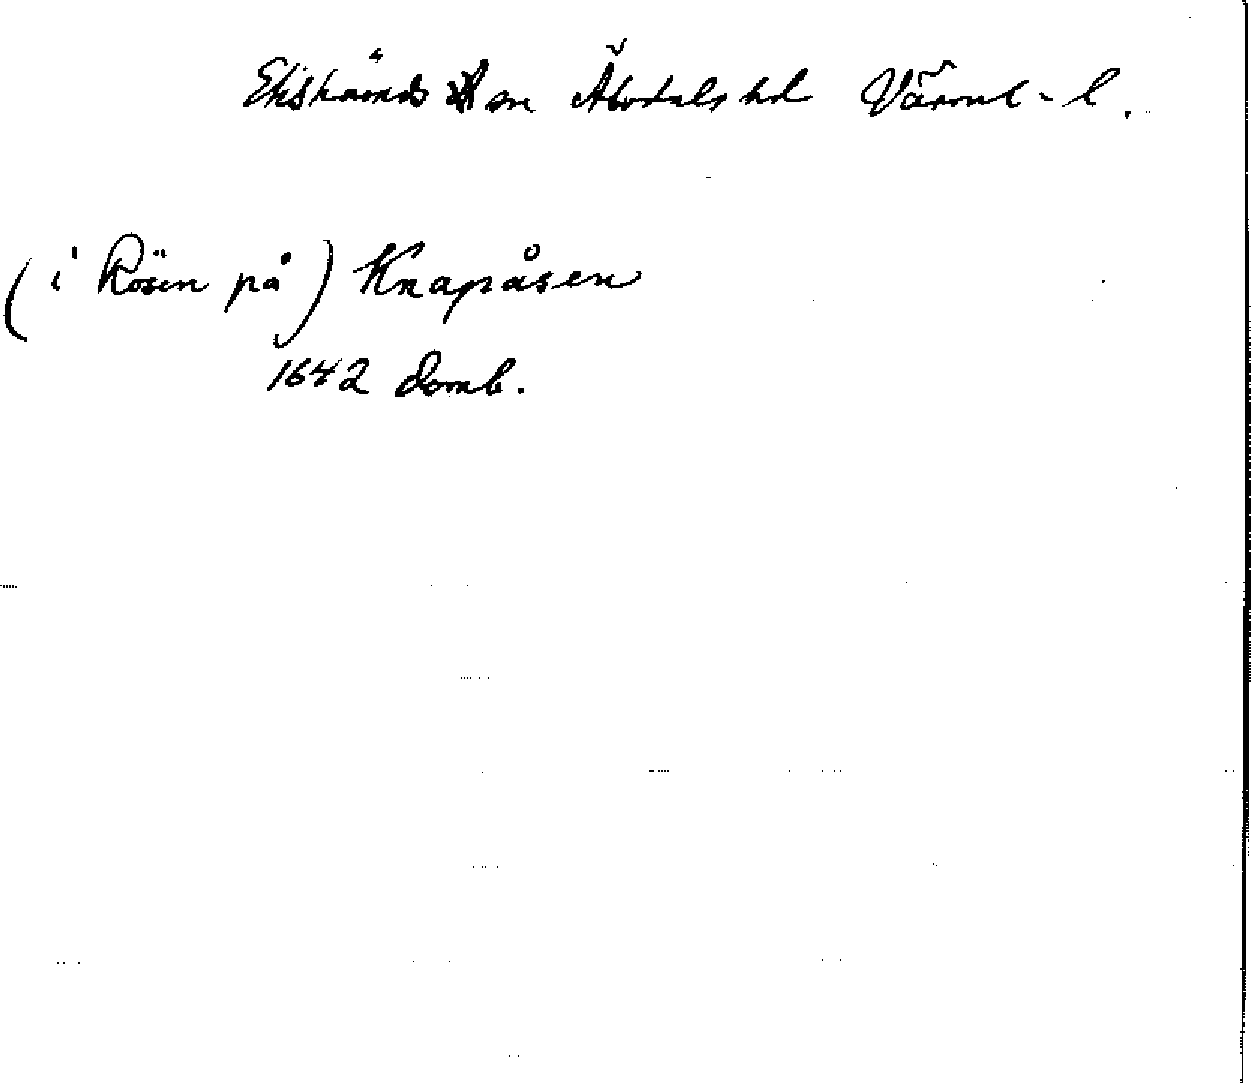 Ekshärads sn Älvdals hd Värml - l.
(i Rösen på) Knapåsen
1642 domb.